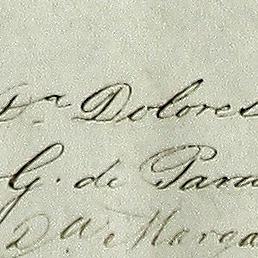 Dª Dolores
G. de Paru
Dª Marga